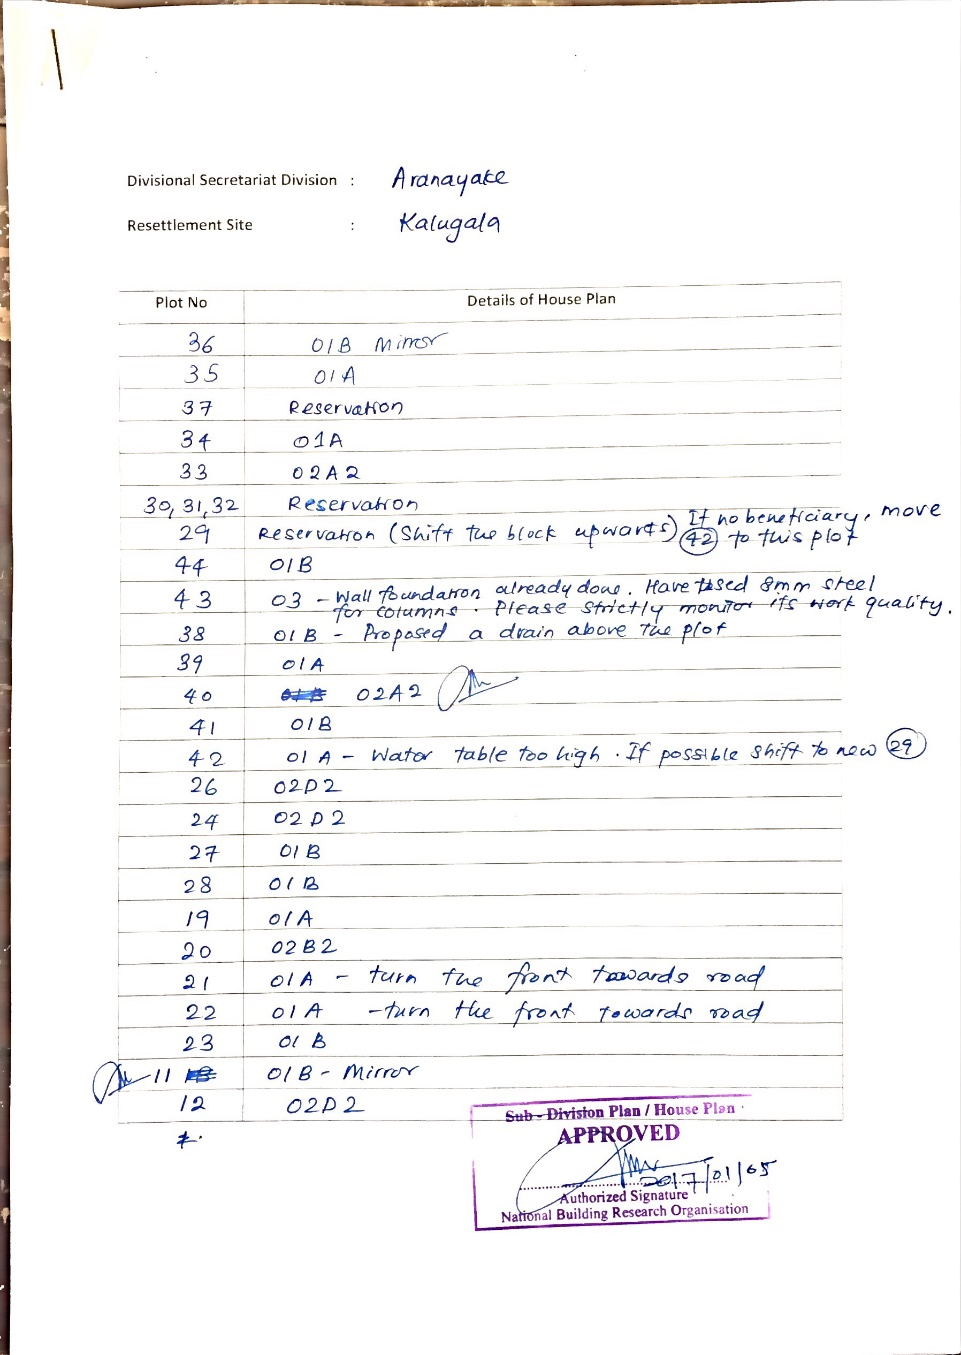 Divisional Secretariat Division : Aranayake
Resettlement Site : Kalugala
Plot No Details of House Plan
36 01B Mirror
35 01A
37 Reservation
34 01A
33 02A2
30, 31, 32 Reservation
29 Reservation (Shift the block upwards) If no beneficiary, move
42 to this plot
44 01B
43 03 - Wall foundation already done. Have used 8mm steel
for columns. Please strictly monitor its work quality.
38 01B - Proposed a drain above the plot
39 01A
40 02A2
41 01B
42 01A - Water table too high. If possible shift to new 29
26 02D2
24 02D2
27 01B
28 01B
19 01A
20 02B2
21 01A - turn the front towards road
22 01A - turn the front towards road
23 01B
11 01B - Mirror
12 02D2
Sub - Division Plan / House Plan
APPROVED
2017/01/05
Authorized Signature
National Building Research Organisation